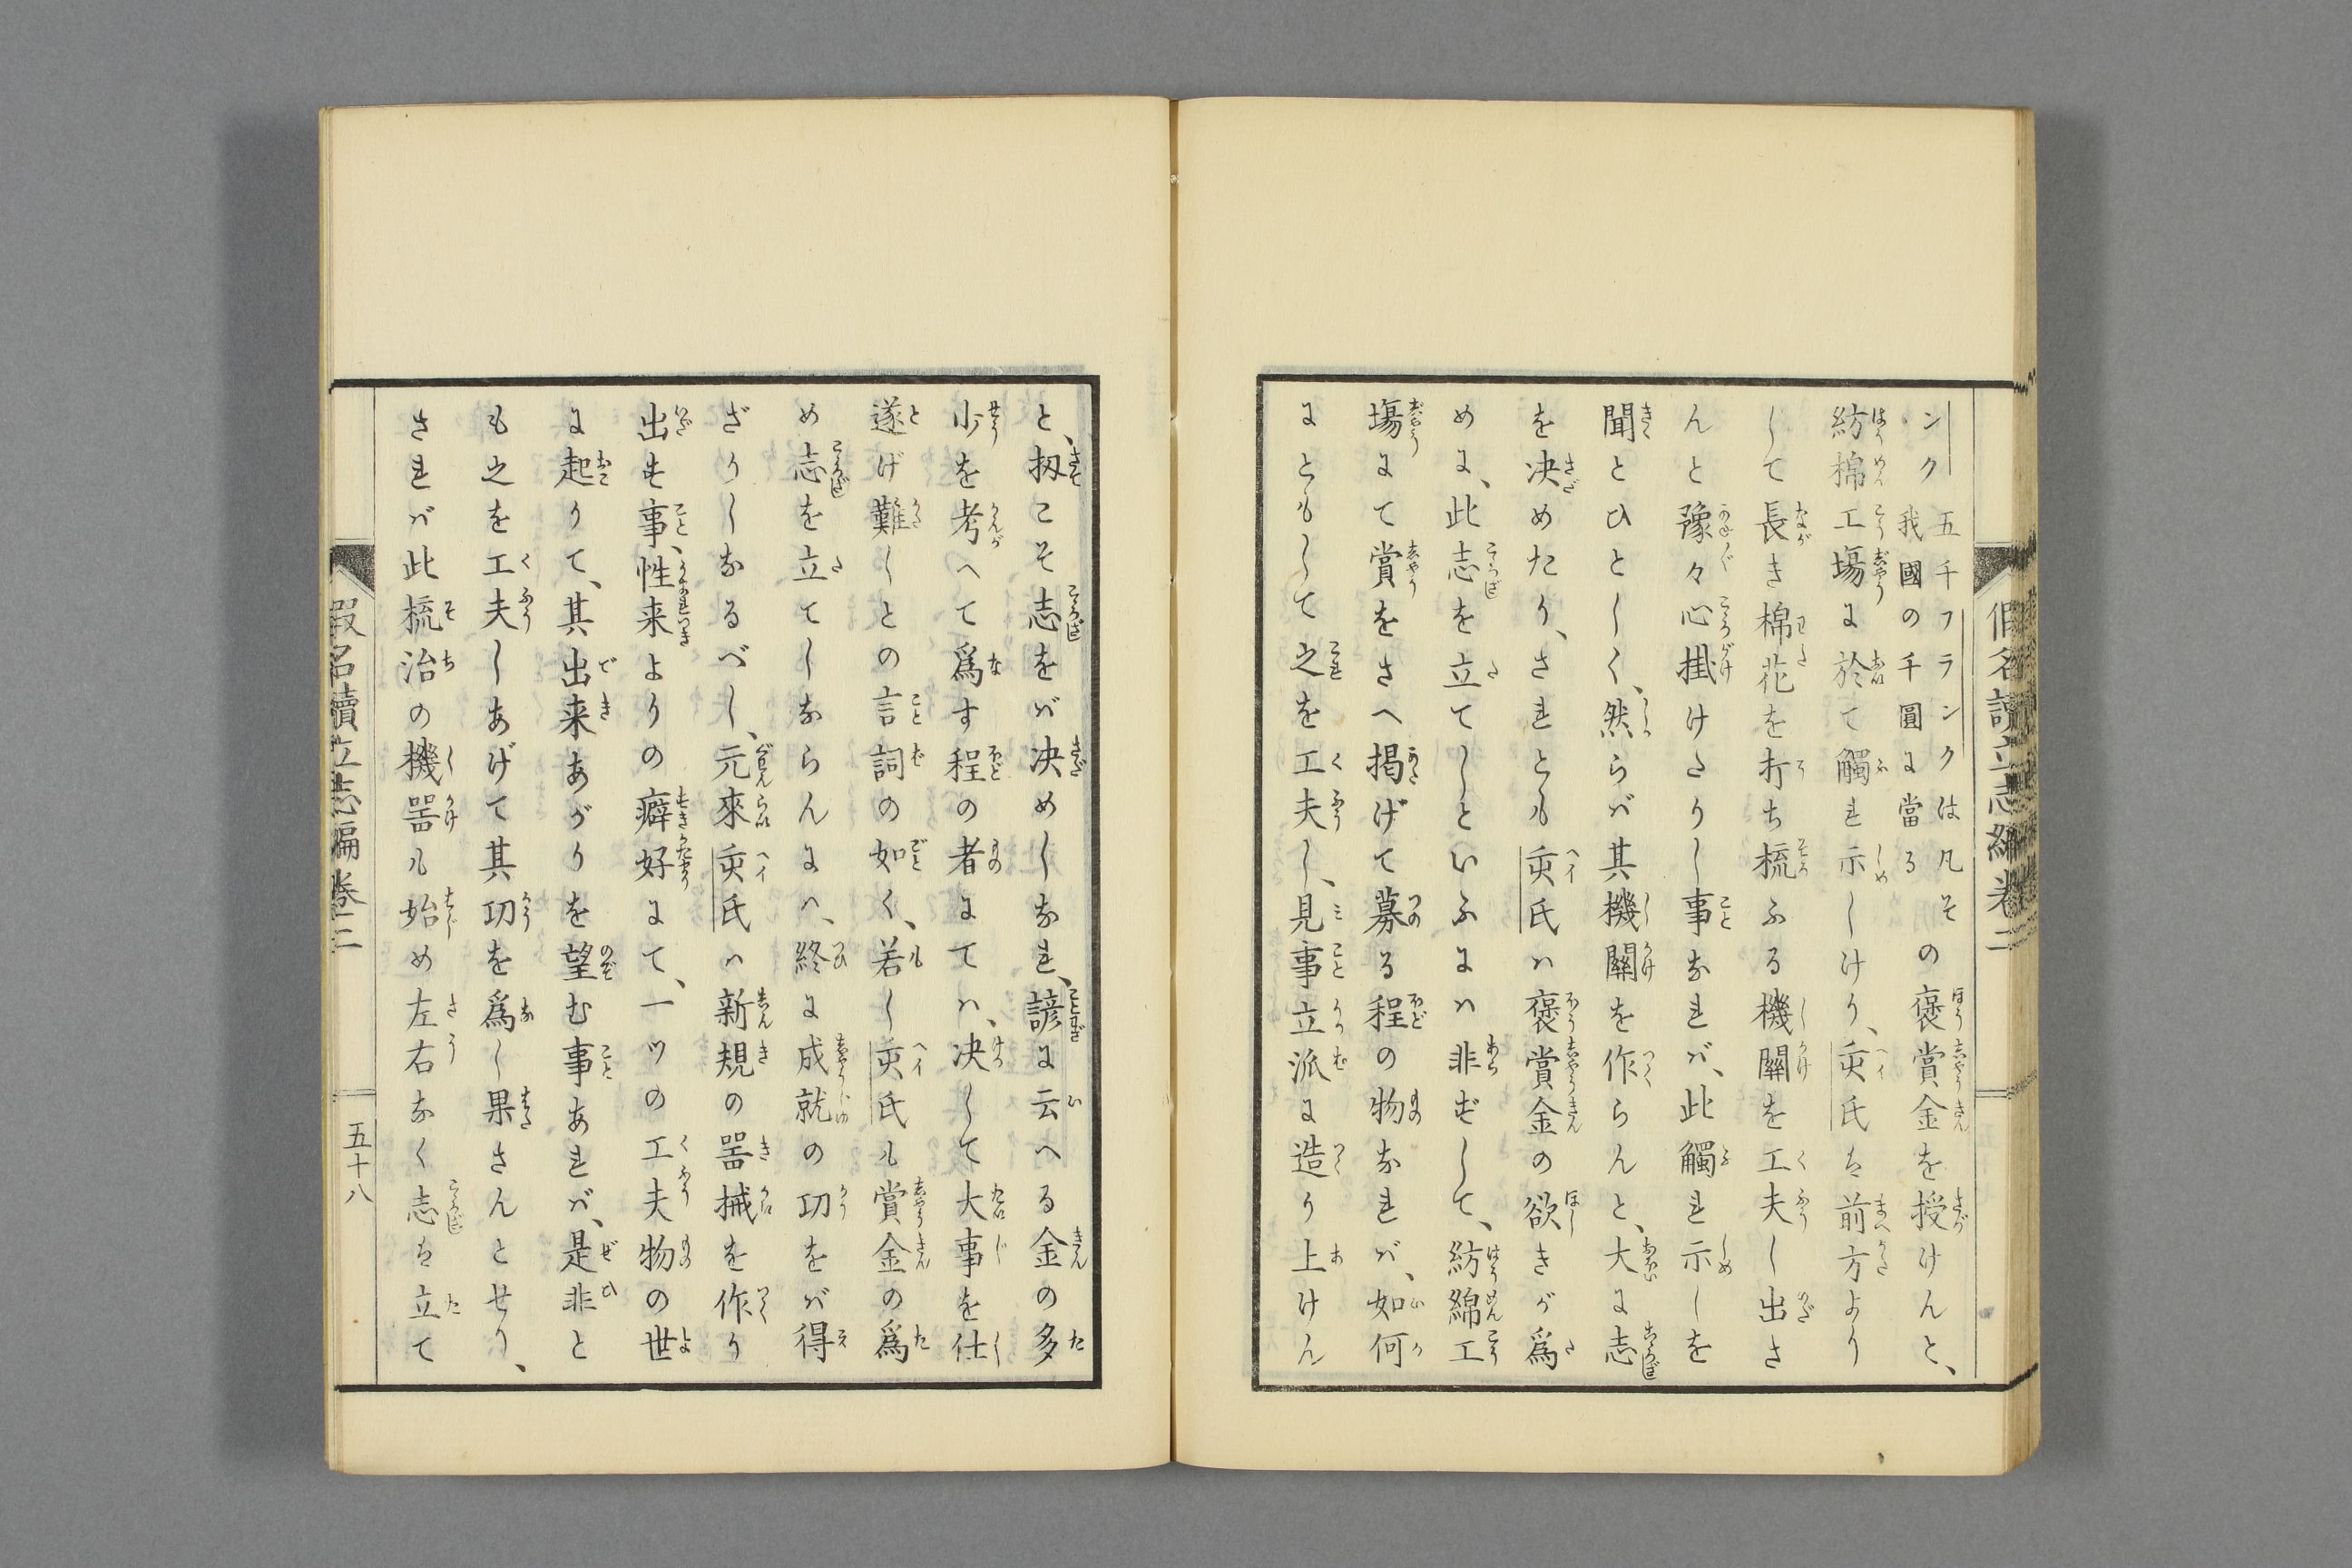 假名讀立志編卷二
ンク五千フランクは凡そ我國の千圓に當るの褒賞金を授けんと、
紡棉工塲に於て觸れ示しけり、𡗗氏は前方より
して長き棉花を打ち梳ふる機關を工夫し出さ
んと豫々心掛けたりし事なれバ、此觸れ示しを
聞とひとしく、然らバ其機關を作らんと、大に志
を决めたり、されとも𡗗氏ハ褒賞金の欲きが爲
めに、此志を立てしといふにハ非ずして、紡綿工
塲にて賞をさへ掲げて募る程の物なれバ、如何
にともして之を工夫し、見事立派に造り上けん
と、扨こそ志をバ决めしなれ、諺に云へる金の多
少を考へて爲す程の者にてハ、决して大事を仕
遂げ難しとの言詞の如く、若し𡗗氏も賞金の爲
め志を立てしならんにハ、終に成就の功をバ得
ざりしなるべし、元來𡗗氏ハ新規の噐械を作り
出す事、性来よりの癖好にて、一ツの工夫物の世
に起りて、其出来あがりを望む事あれバ、是非と
も之を工夫しあげて其功を爲し果さんとせり、
されバ此梳治の機噐も始め左右なく志は立て
假名讀立志編卷二
五十八